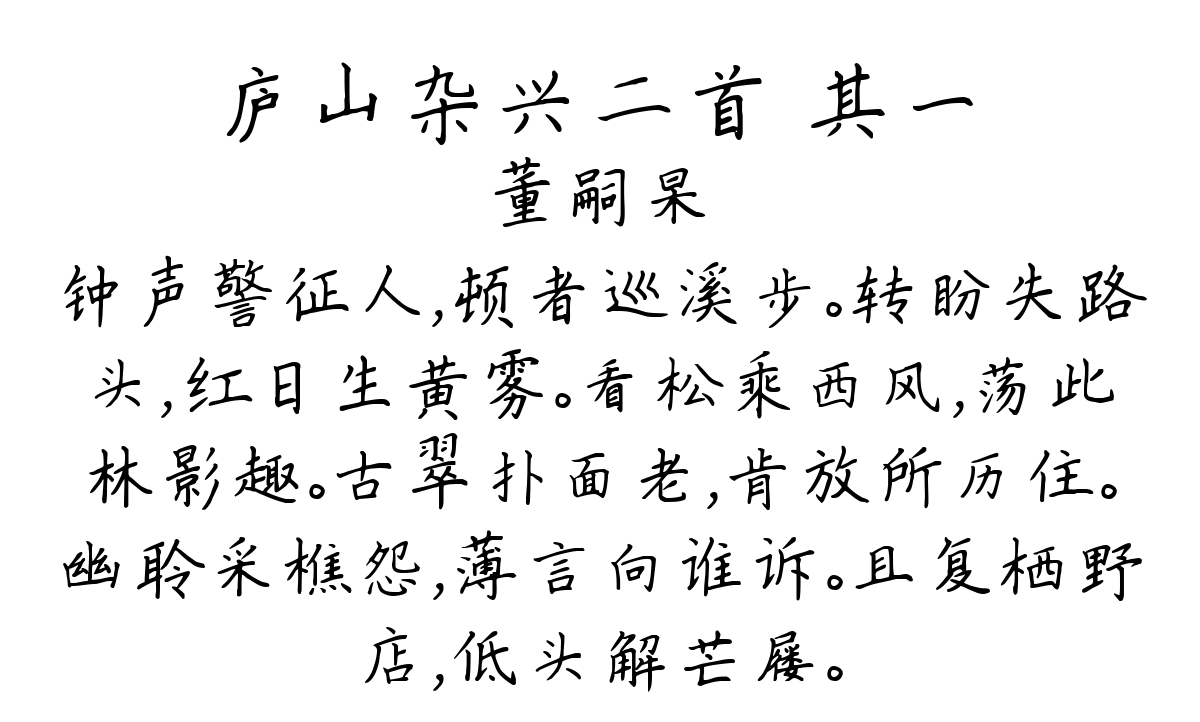 庐山杂兴二首 其一
董嗣杲
钟声警征人,顿者巡溪步。转盼失路
头,红日生黄雾。看松乘西风,荡此
林影趣。古翠扑面老,肯放所历住。
幽聆采樵怨,薄言向谁诉。且复栖野
店,低头解芒屦。